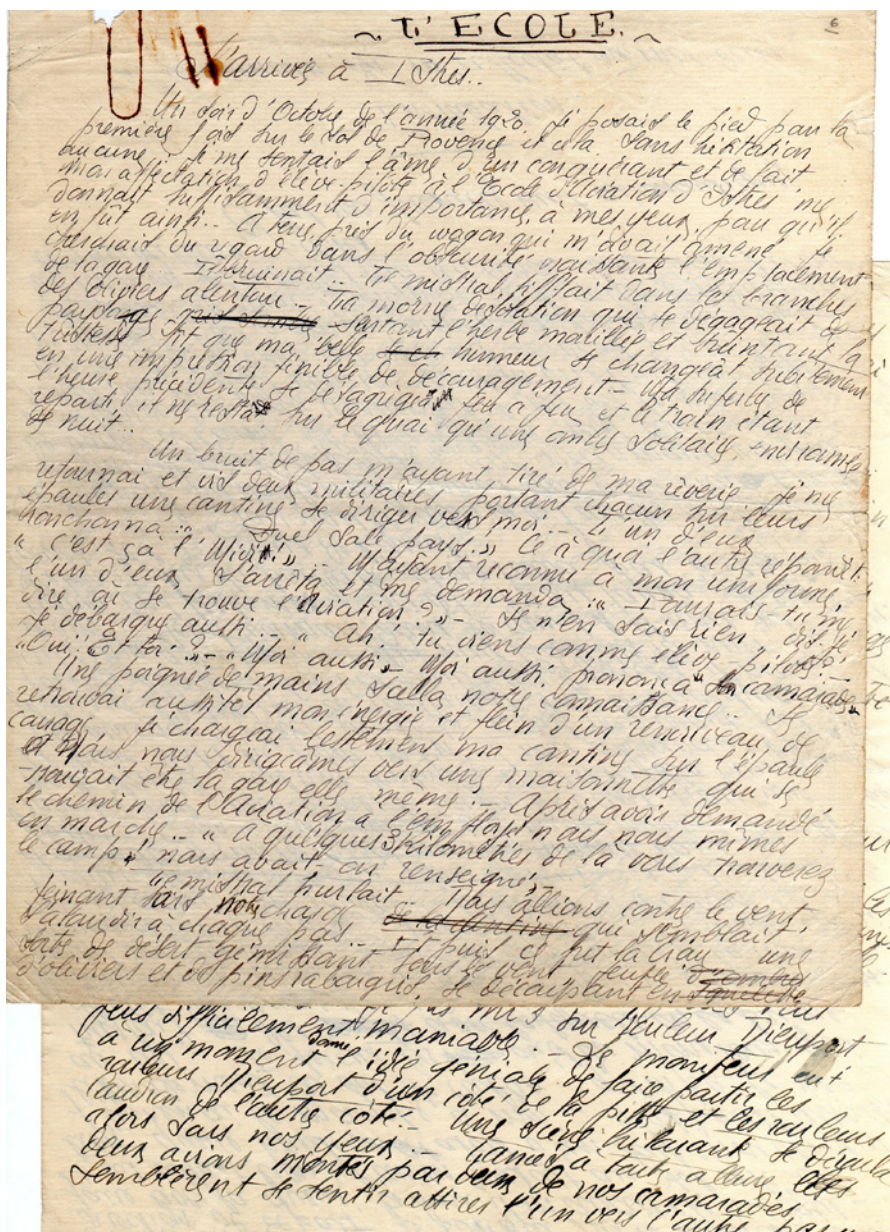 L'ECOLE.
6
L'arrivée à Istres..
Un soir d'Octobre de l'année 1920. je posais le pied pour la
première fois sur le sol de Provence et cela sans hésitation
aucune. je me sentais l'âme d'un conquérant et de fait
mon affectation d'élève-pilote à l'Ecole d'Aviation d'Istres me
donnait suffisamment d'importance, à mes yeux, pour qu'il
en fût ainsi.. A terre, près du wagon qui m'avait amené je
cherchais du regard dans l'obscurité naissante l'emplacement
de la gare. Il bruinait.. Le mistral sifflait dans les branches
des oliviers alentour.. La morne désolation qui se dégageait de
paysage sentant l'herbe mouillée et suintant la
tristesse fit que ma belle humeur se changeât subitement
en une impression pénible de découragement - Ma superbe de
l'heure précédente se désagrégea peu à peu et le train étant
reparti il ne resta sur le quai qu'une ombre solitaire,
de nuit..
Un bruit de pas m'ayant tiré de ma rêverie je me
retournai et vis deux militaires portant chacun sur leurs
épaules une cantine se diriger vers moi.. L'un d'eux
ronchonna : " Quel sale pays.." Ce à quoi l'autre répondit:
" C'est ça l'Midi!".. M'ayant reconnu à mon uniforme
l'un d'eux s'arrêta et me demanda : " Pourrais-tu me
dire où se trouve l'Aviation?" - Je n'en sais rien dis-je
je débarque aussi.. " Ah! tu viens comme élève pilote?"
"Oui! Et toi?" - "Moi aussi" Moi aussi. prononça camarade
Une poignée de mains scella notre connaissance.. Je
retrouvai aussitôt mon énergie et plein d'un renouveau de
courage je chargeai lestement ma cantine sur l'épaule
et nous nous dirigeâmes vers une maisonnette qui se
trouvait être la gare elle même.. Après avoir demandé
le chemin de l'Aviation à l'employé nous nous mîmes
en marche.. " A quelques 3 kilomètres de là vous trouverez
le camp" nous avait on renseigné..
Le mistral hurlait.. Nous allions contre le vent
peinant sous notre charge qui semblait
s'alourdir à chaque pas.. Et puis ce fut la Crau une
sorte de désert gémissant sous le vent peuplé
d'oliviers et de pins rabougris se découpant en
sur rouleur Nieuport
plus difficilement maniable.. Le moniteur eut
à un moment donné l'idée géniale de faire partir les
rouleurs Nieuport d'un côté de la piste et les rouleurs
Caudron de l'autre côté.. Une scène hilarante se déroula
alors sous nos yeux.. Lancés à toute allure les
deux avions montés par deux de nos camarades
semblèrent se sentir attirés l'un vers l'autre